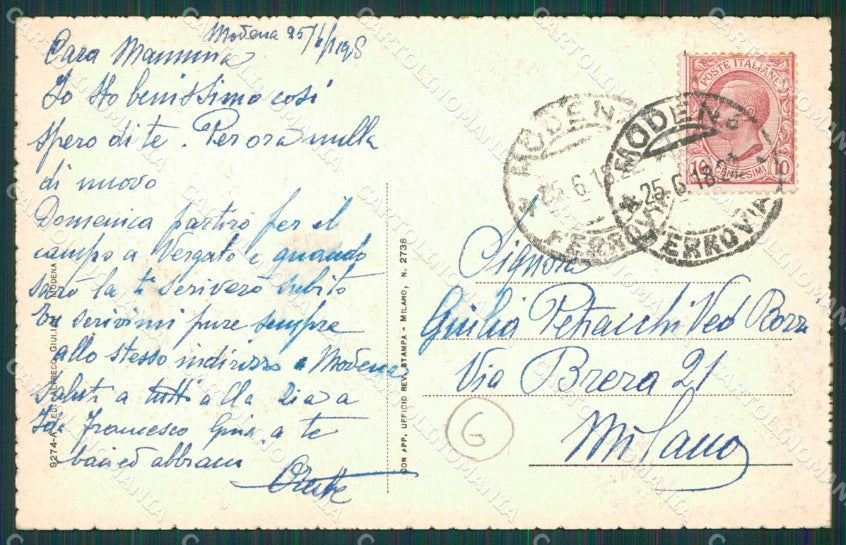 Modena 25/6/1918
Cara Mamma
Io sto benissimo così
spero di te. Per ora nulla
di nuovo
Domenica partirò per il
campo a Vergato e quando
sarò là ti scriverò subito
Tu scrivimi pure sempre
allo stesso indirizzo a Modena
Saluti a tutti alla zia a
Francesco a te
baci ed abbracci
Oreste
9274-A - ED. CALBRECCO GIULIA - MODENA
CON APP. UFFICIO REV. STAMPA - MILANO, N. 2736
POSTE ITALIANE
10 CENTESIMI 10
MODENA
25.6.18
FERROVIA
MODENA
25.6.18 21
FERROVIA
Signora
Giulia Petracchi Ved Bozzi
Via Brera 21
Milano
G
CARTOLINOMANIA